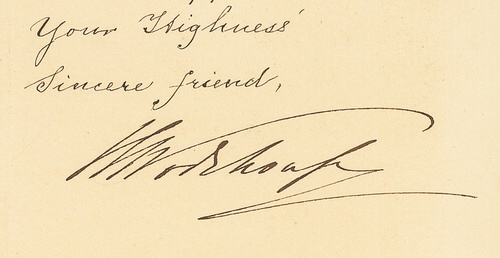 Your Highness'
Sincere friend,
Wodehouse